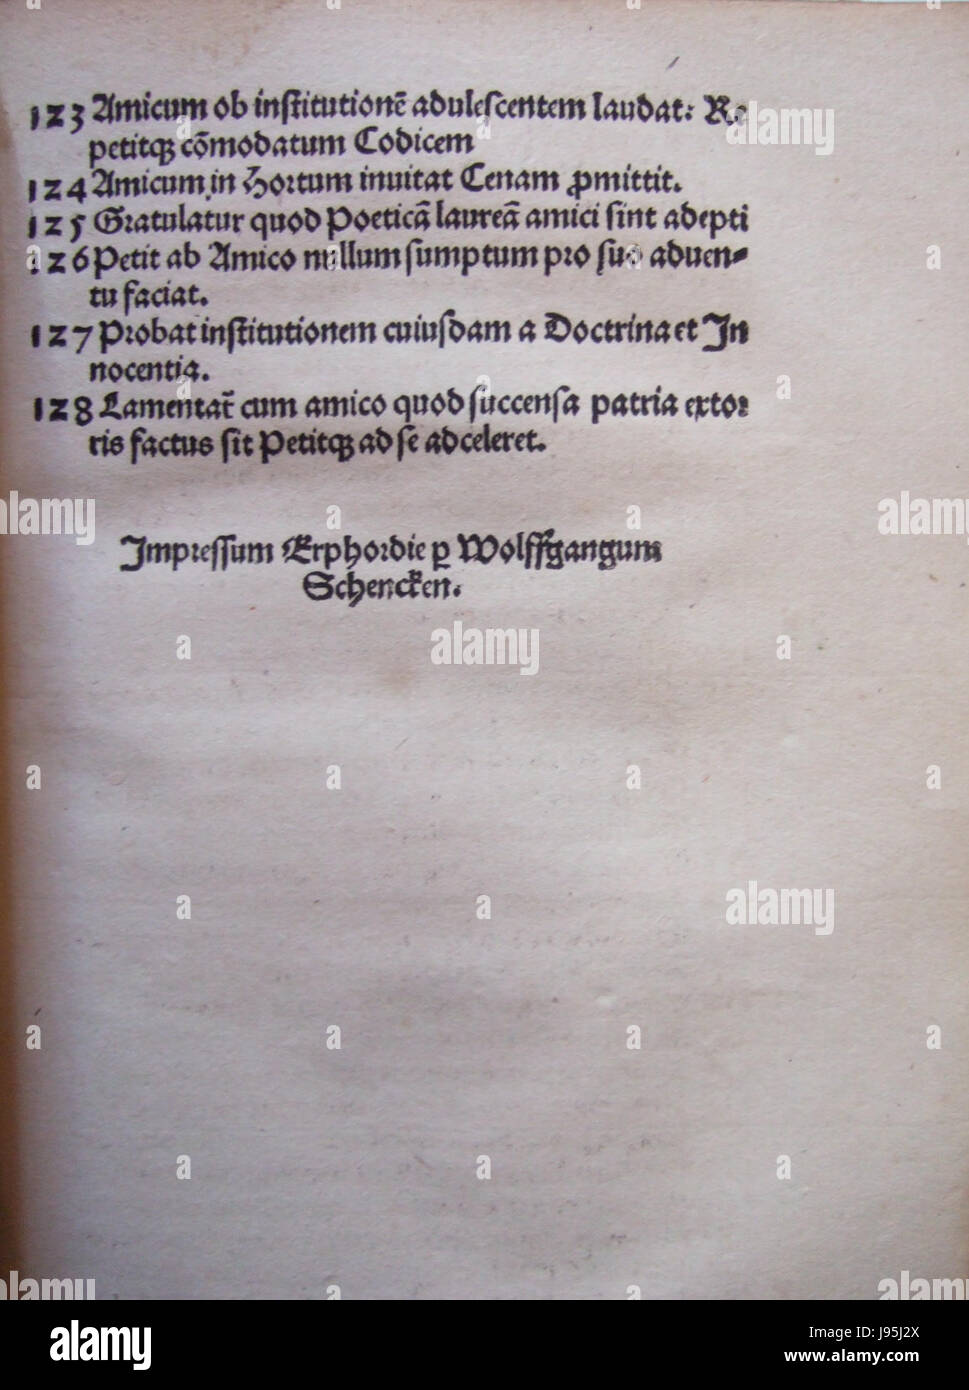 123 Amicum ob institutionē adulescentem laudat: Re
petitqȝ cōmodatum Codicem
124 Amicum in Hortum inuitat Cenam ꝓmittit.
125 Gratulatur quod Poeticā laureā amici sint adepti
126 Petit ab Amico nullum sumptum pro suo aduen⸗
tu faciat.
127 Probat institutionem cuiusdam a Doctrina et In
nocentia.
128 Lamentat̄ cum amico quod succensa patria extor
ris factus sit Petitqȝ ad se adceleret.
Impressum Erphordie ꝑ Wolffgangum
Schencken.
alamy
Image ID: J95J2X
www.alamy.com